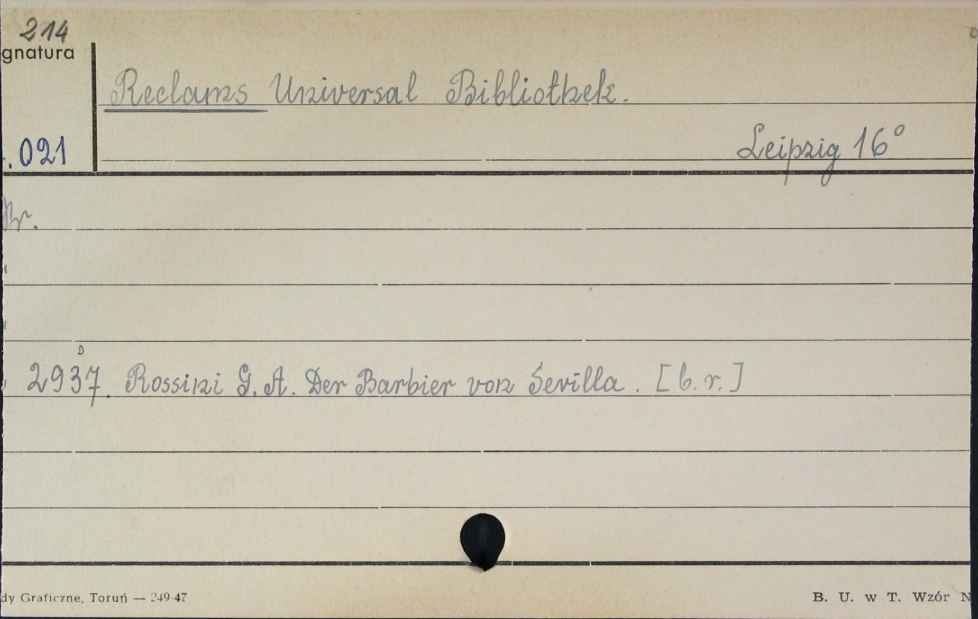 214
gnatura
Reclams Universal Bibliothek.
.021
Leipzig 16°
Nr.
D
2937. Rossini G. A. Der Barbier von Sevilla. [b. r.]
dy Graficzne, Toruń — 249-47
B. U. w T. Wzór N